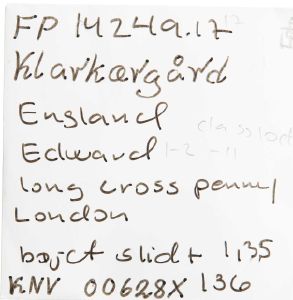 FP 14249.17
Klarkærgård
England
Edward 1-2
long cross penny
London
bøjet slidt 1,35
KNV 00628X 136